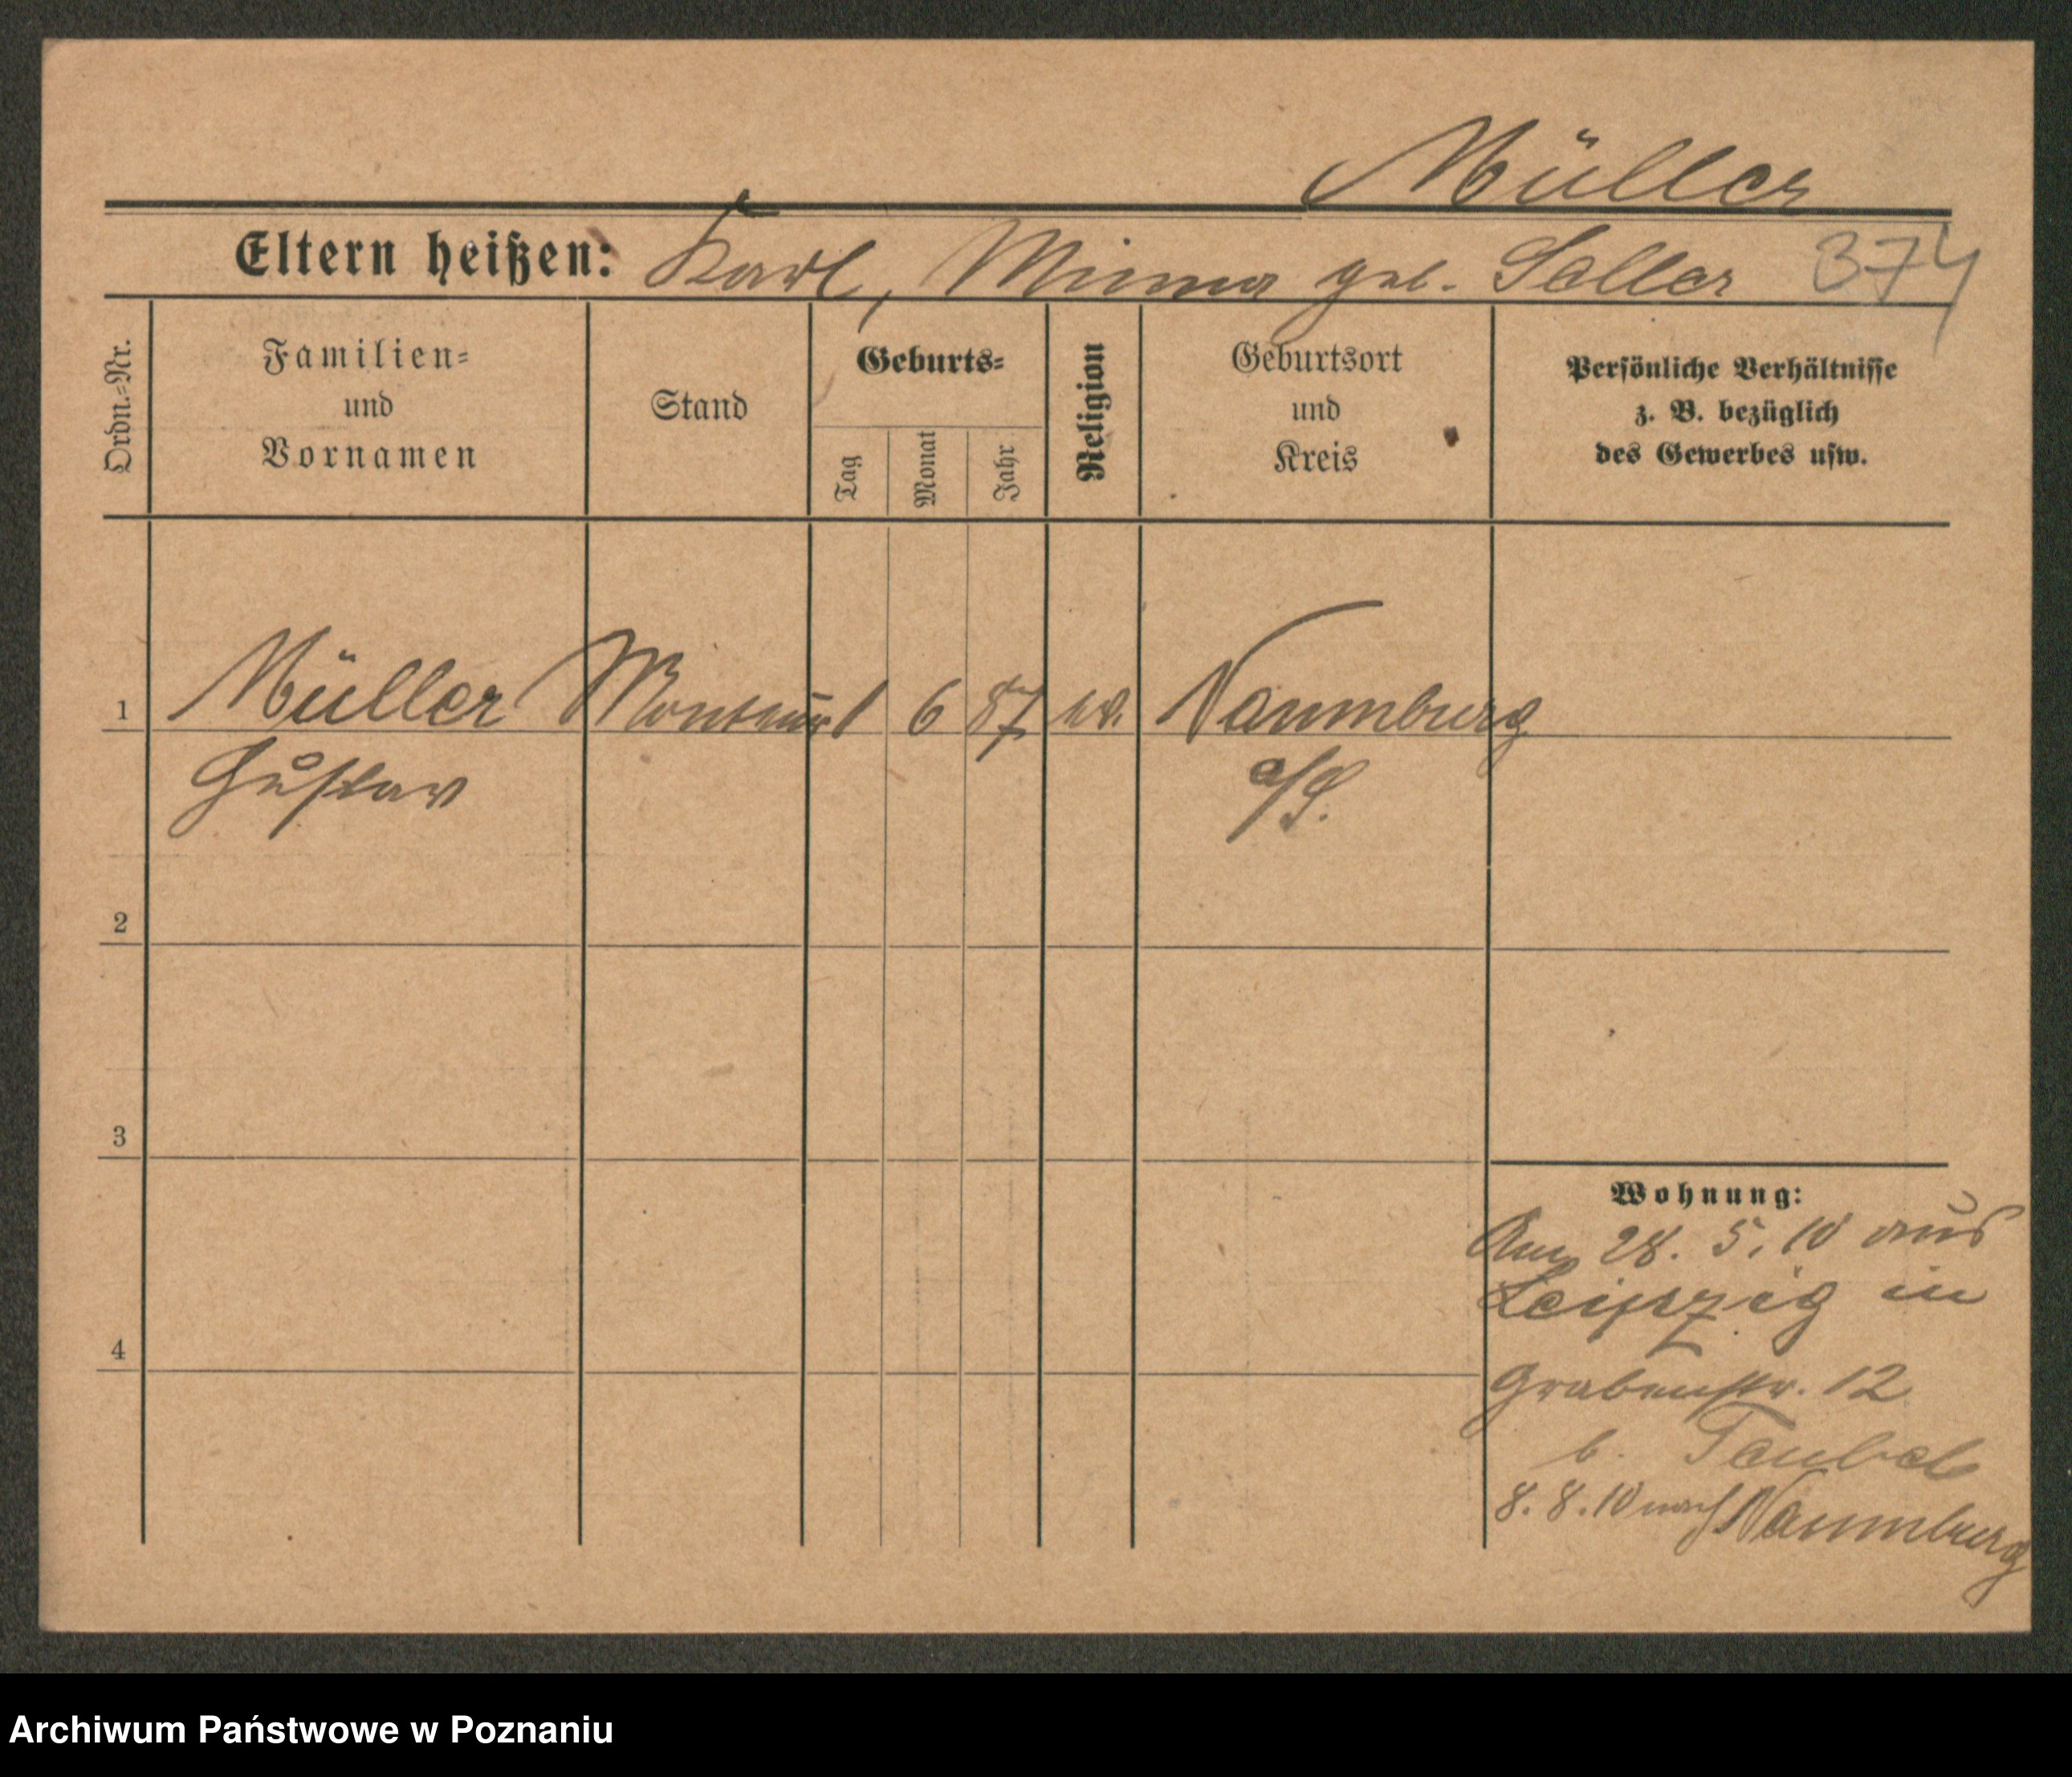 Müller
Eltern heißen: Karl, Minna geb. Seller 374
Ordn.=Nr.
Familien=
und
Vornamen
Stand
Geburts=
Tag
Monat
Jahr
Religion
Geburtsort
und
Kreis
Persönliche Verhältnisse
z. B. bezüglich
des Gewerbes usw.
1 Müller Monteur 1 6 87 ev. Naumburg
Gustav a/S.
2
3
4
Wohnung:
Am 28. 5. 10 aus
Leipzig in
Grabenstr. 12
b.
8. 8. 10 nach Naumburg
Archiwum Państwowe w Poznaniu